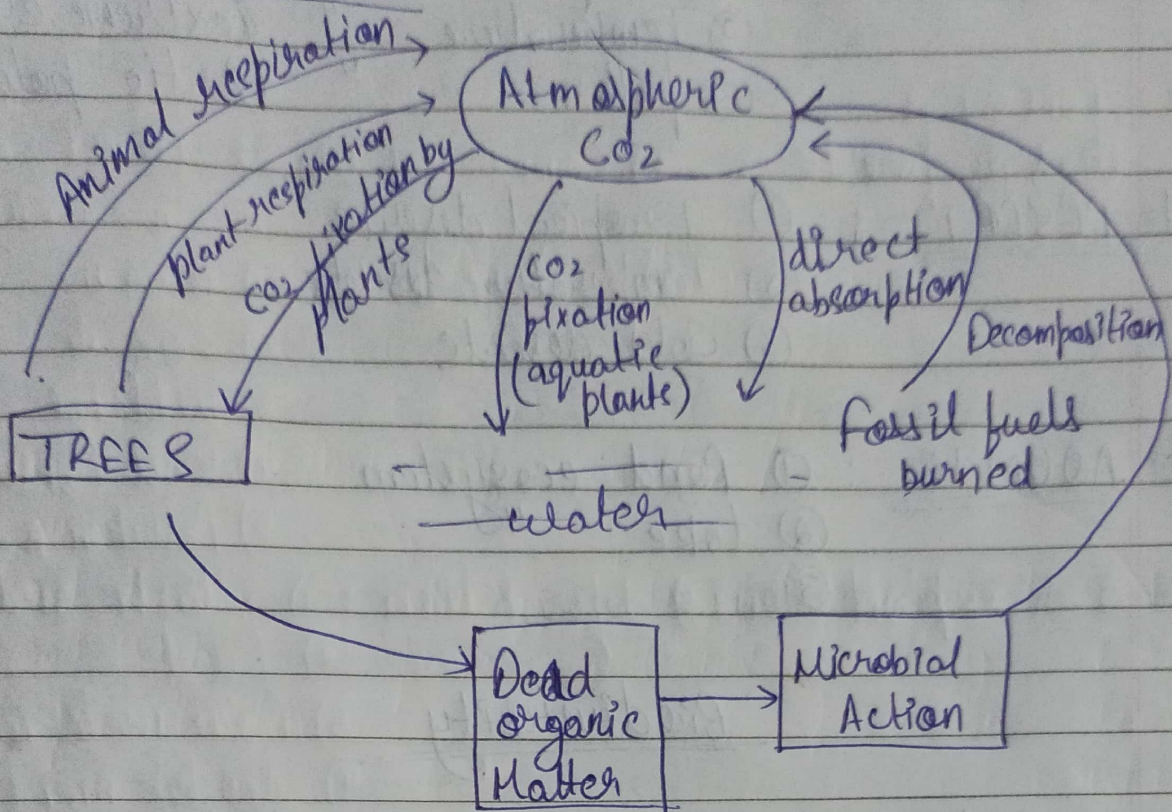 Animal respiration
Atmospheric
CO2
plant respiration
CO2 fixation by
plants
CO2
fixation
(aquatic
plants)
direct
absorption
Decomposition
fossil fuels
burned
TREES
water
Dead
organic
Matter
Microbial
Action